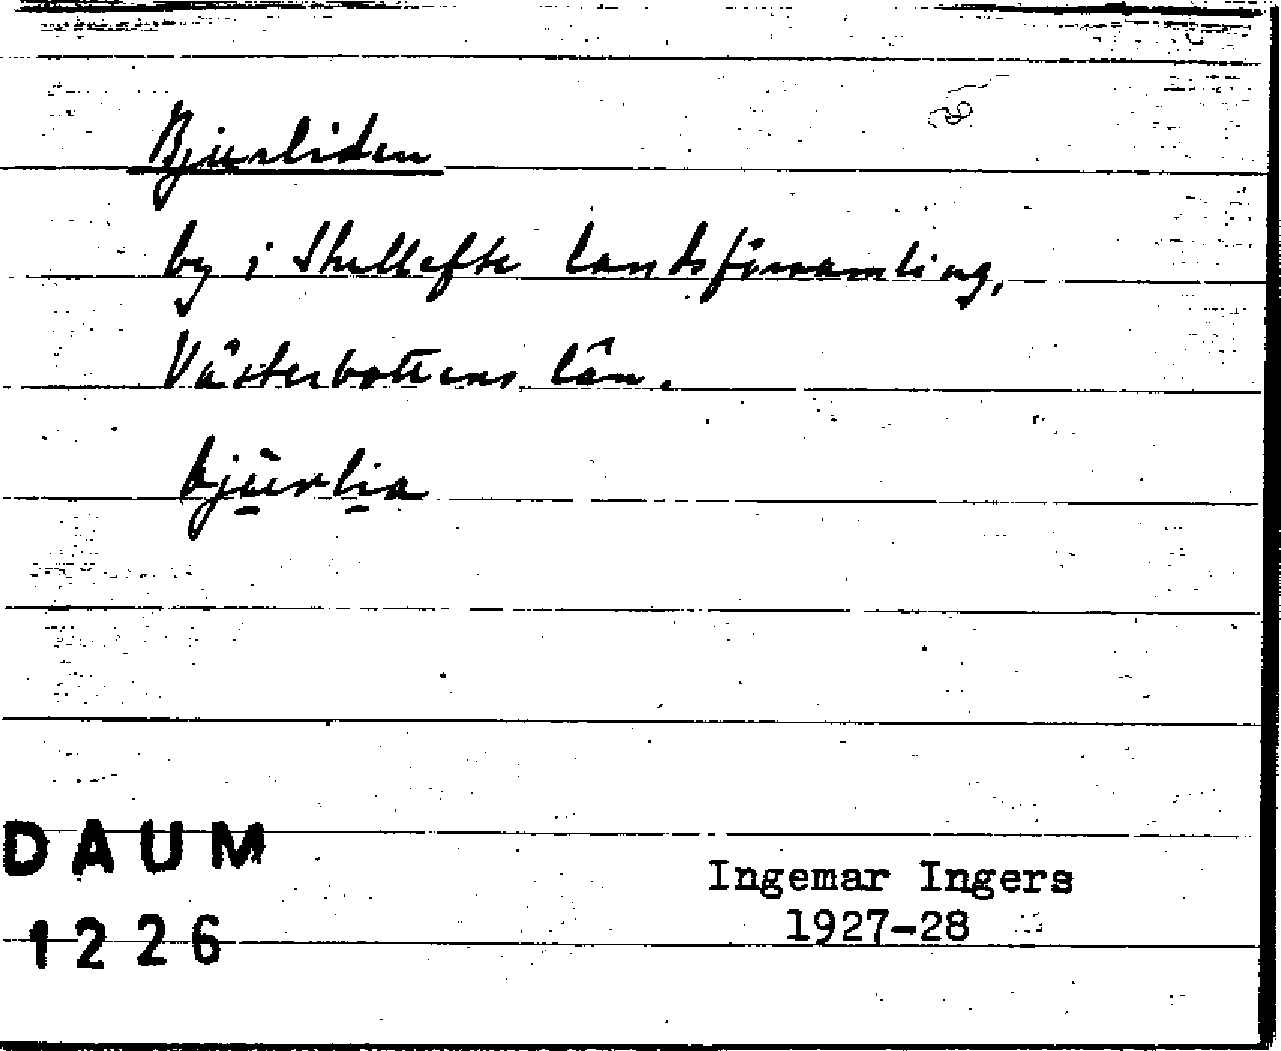 Bjurliden
by i Skellefte landsförsamling,
Västerbottens län.
bjŭrlia
DAUM
1226
Ingemar Ingers
1927-28